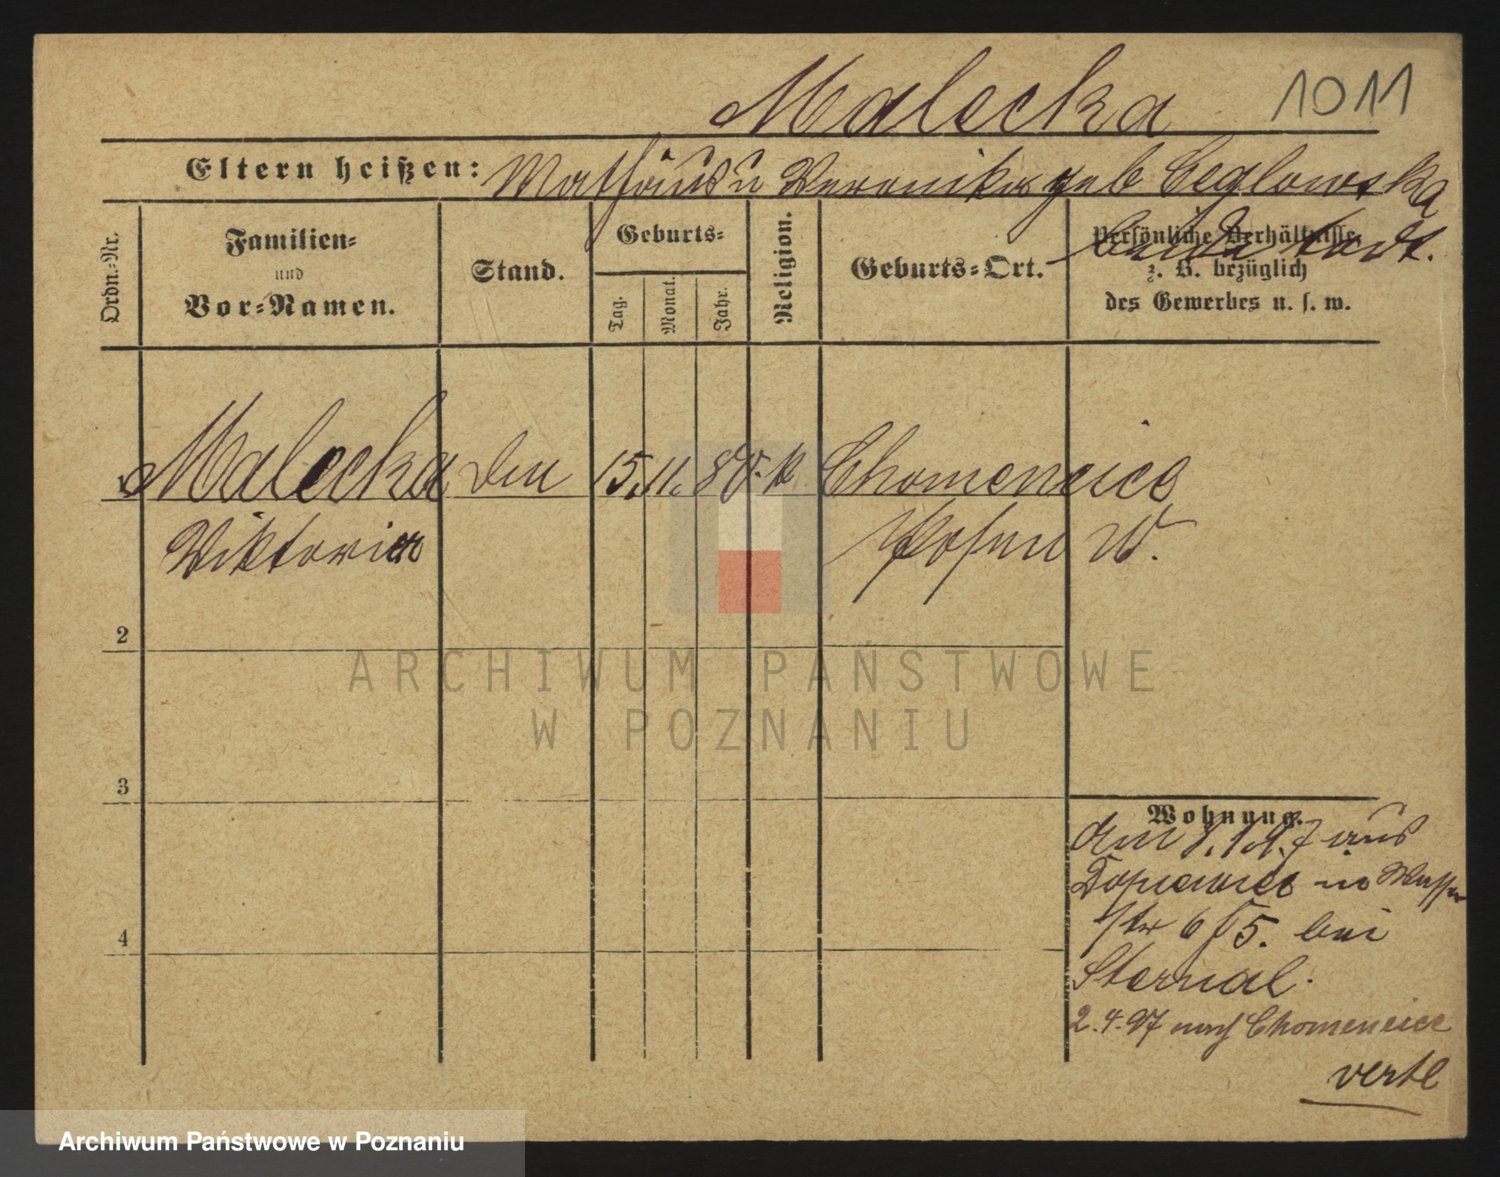 Malecka 1011
Eltern heißen: Mathäus u Veronika geb Ceglowska
beide todt.
Ordn.-Nr.
Familien-
und
Vor-Namen.
Stand.
Geburts-
Tag.
Monat.
Jahr.
Religion.
Geburts-Ort.
Persönliche Verhältnisse
z. B. bezüglich
des Gewerbes u. s. w.
1 Malecka 15. 11. 80. k Chomencice
Viktoria Posen W.
2
3
4
Wohnung.
am 8.1.97 aus
Dopiewice Wasser
str 6 bei
Sternal.
2.4.97 nach Chomencice
verte
ARCHIWUM PAŃSTWOWE
W POZNANIU
Archiwum Państwowe w Poznaniu